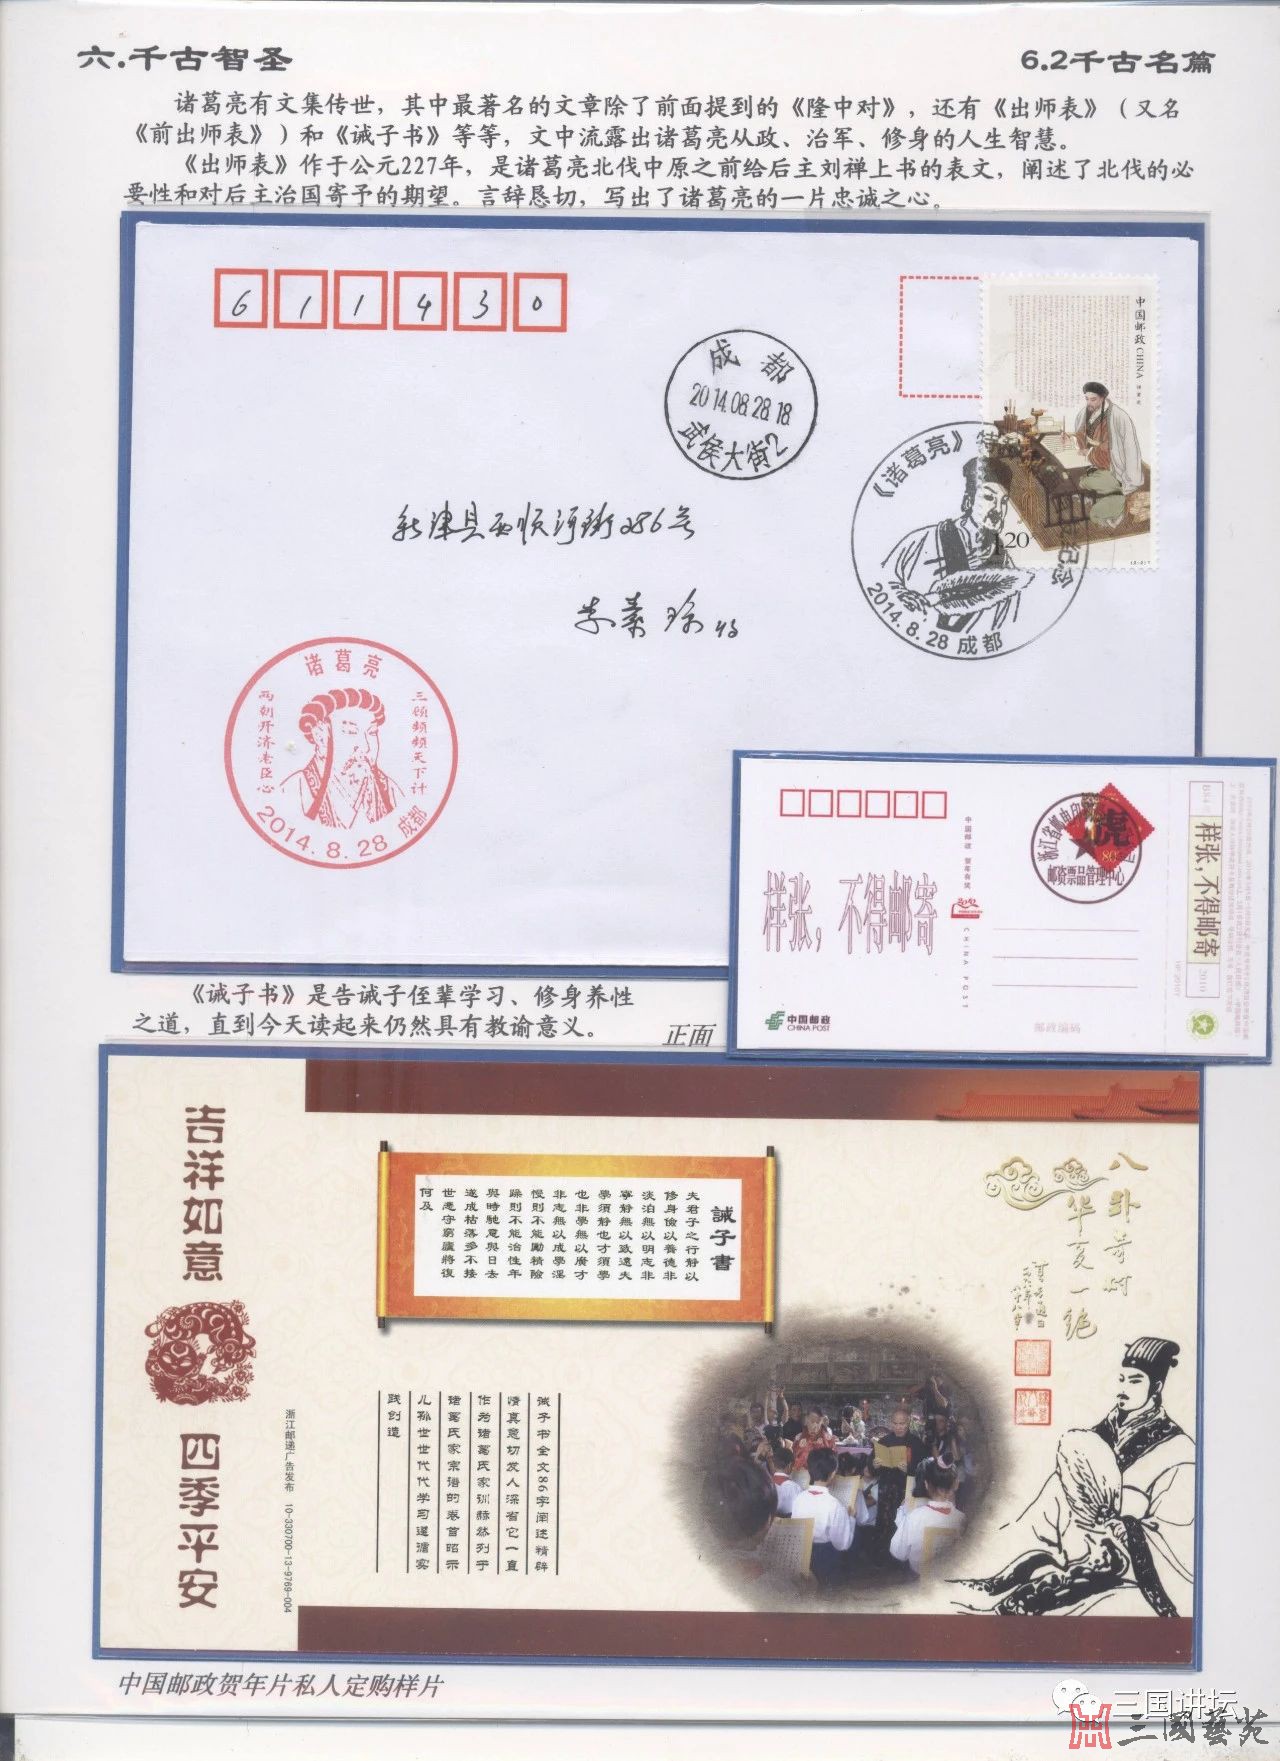 六.千古智圣
6.2千古名篇
诸葛亮有文集传世，其中最著名的文章除了前面提到的《隆中对》，还有《出师表》（又名
《前出师表》）和《诫子书》等等，文中流露出诸葛亮从政、治军、修身的人生智慧。
《出师表》作于公元227年，是诸葛亮北伐中原之前给后主刘禅上书的表文，阐述了北伐的必
要性和对后主治国寄予的期望。言辞恳切，写出了诸葛亮的一片忠诚之心。
611430
中国邮政 CHINA
1.20
成都
2014.08.28.18
武侯大街2
《诸葛亮》特
纪念
2014.8.28 成都
新津县西顺河街286号
李素 收
诸葛亮
三顾频频天下计
两朝开济老臣心
2014.8.28 成都
虎
80
浙江省邮电印
邮资票品管理中心
样张，不得邮寄
中国邮政 贺年有奖
CHINA POST
中国邮政
CHINA POST
邮政编码
样张，不得邮寄
2010
《诫子书》是告诫子侄辈学习、修身养性
之道，直到今天读起来仍然具有教谕意义。
正面
吉祥如意
四季平安
浙江邮递广告发布 10-330700-13-9769-004
誡子書
夫君子之行靜以
修身儉以養德非
淡泊無以明志非
寧靜無以致遠夫
學須靜也才須學
也非學無以廣才
非志無以成學淫
慢則不能勵精險
躁則不能治性年
與時馳意與日去
遂成枯落多不接
世悲守窮廬將復
何及
诫子书全文86字阐述精辟
情真意切发人深省它一直
作为诸葛氏家训赫然列于
诸葛氏家宗谱的卷首昭示
儿孙世世代代学习遵循实
践创造
八卦奇村
华夏一绝
中国邮政贺年片私人定购样片
三国讲坛
三國藝苑